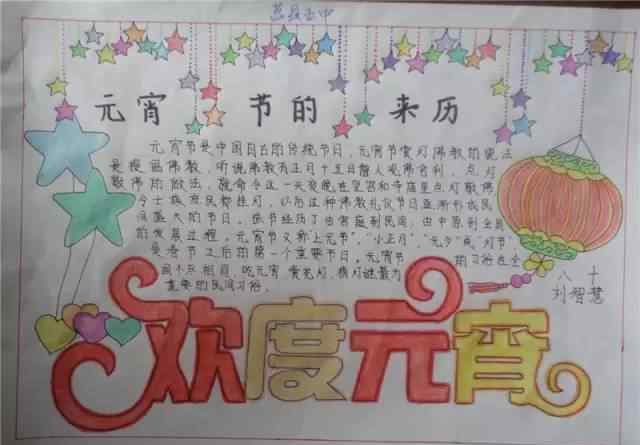 元宵节的来历
元宵节是中国自古的传统节日，元宵节赏灯佛教的说法
是提倡佛教，听说佛教有正月十五日僧人观佛舍利，点灯
敬佛的做法，就命令这一天夜晚在皇宫和寺庙里点灯敬佛
令士族庶民都挂灯，以后这种佛教礼仪节日逐渐形成民
间盛大的节日。该节经历了由宫庭到民间，由中原到全国
的发展过程，元宵节又称上元节"，"小正月"，"元夕"或"灯节"
是春节之后的第一个重要节日，元宵节 的习俗在全
国不尽相同，吃元宵 赏花灯，猜灯谜最为
重要的民间习俗。
八 十
刘智慧
欢度元宵